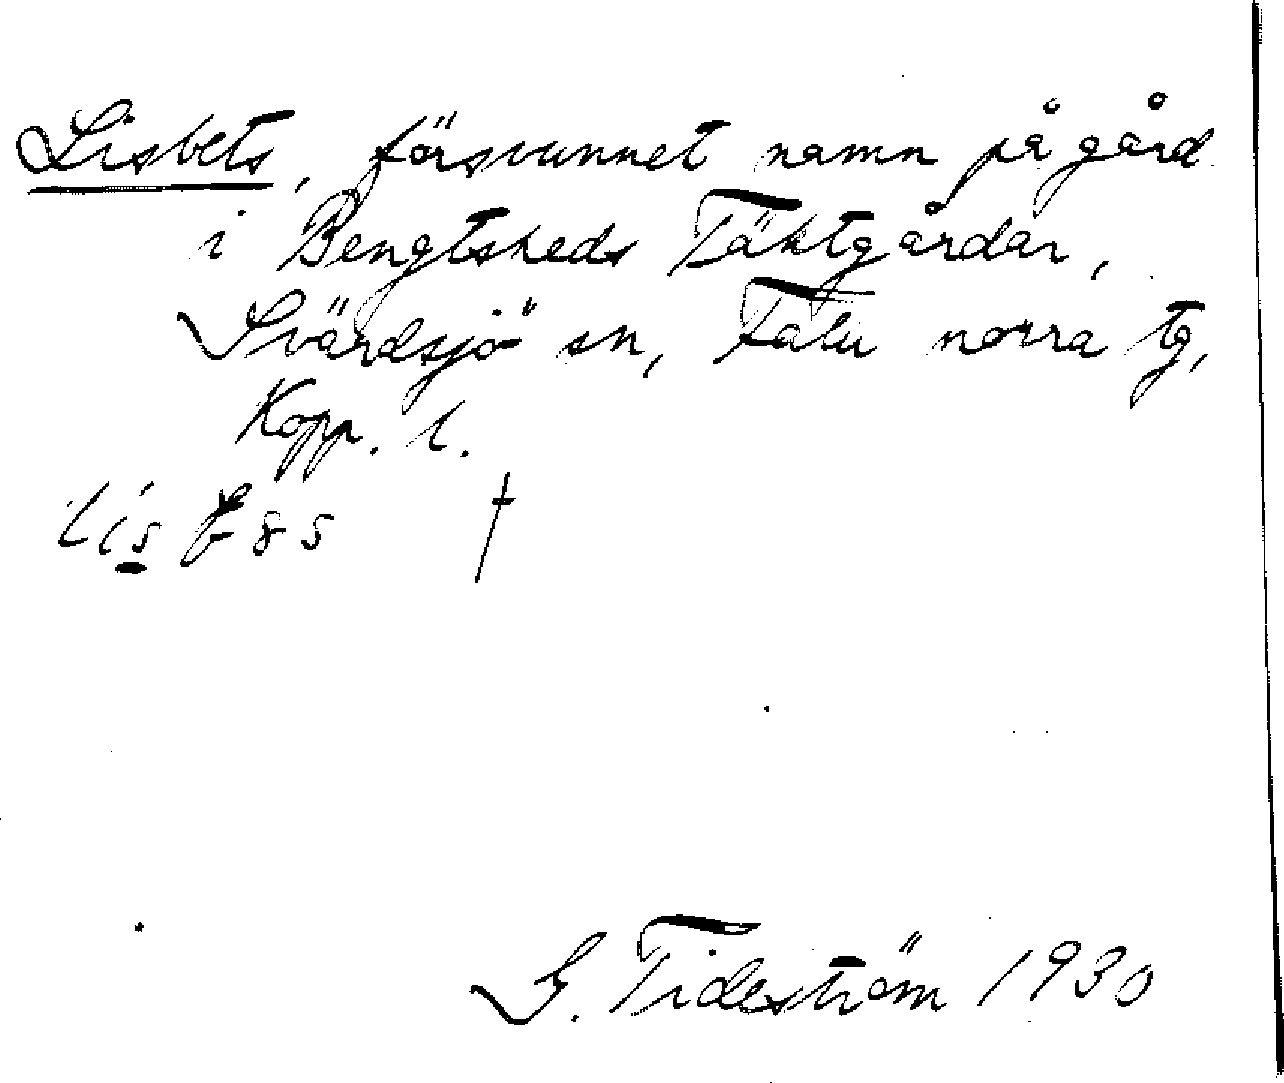 Lisbets, försvunnet namn på gård
i Bengtsheds Täktgårdar,
Svärdsjö sn, Falu norra tg,
Kopp. l.
†
G. Tideström 1930